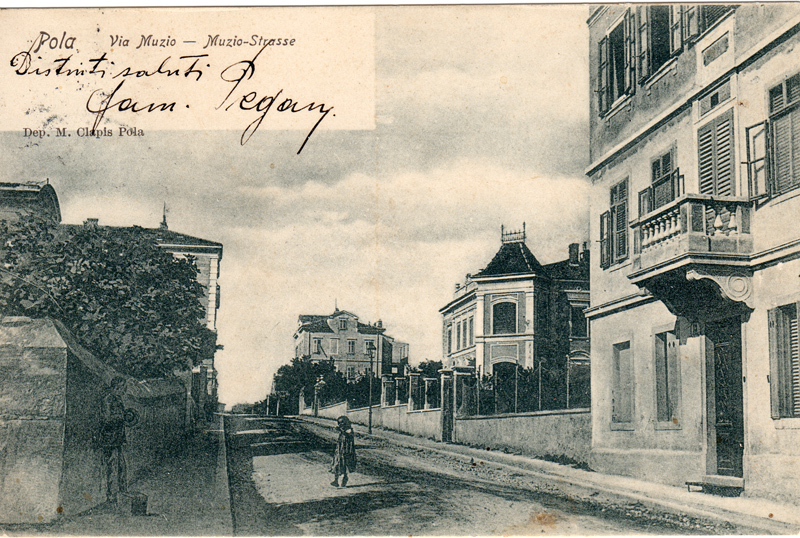 Pola Via Muzio — Muzio-Strasse
Distinti saluti
Fam. Pegan
Dep. M. Clapis Pola